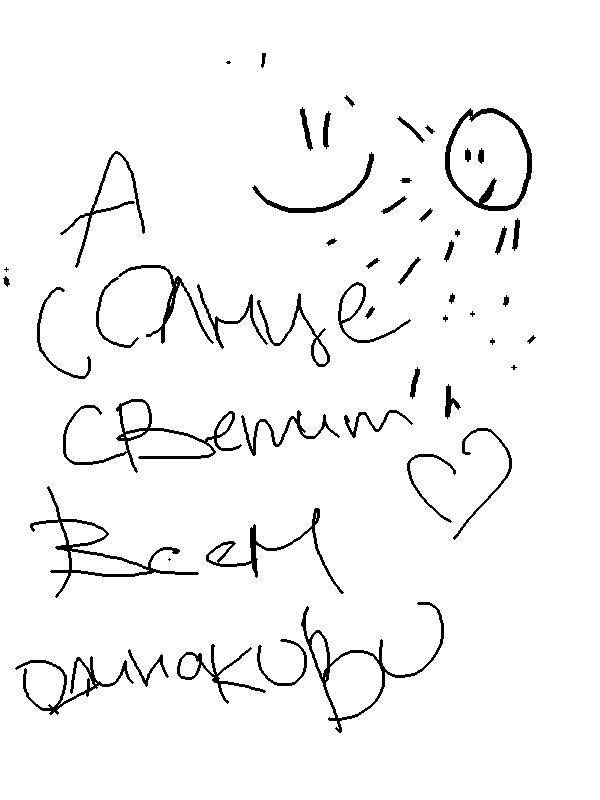 А
Солнце
светит
Всем
одинаково